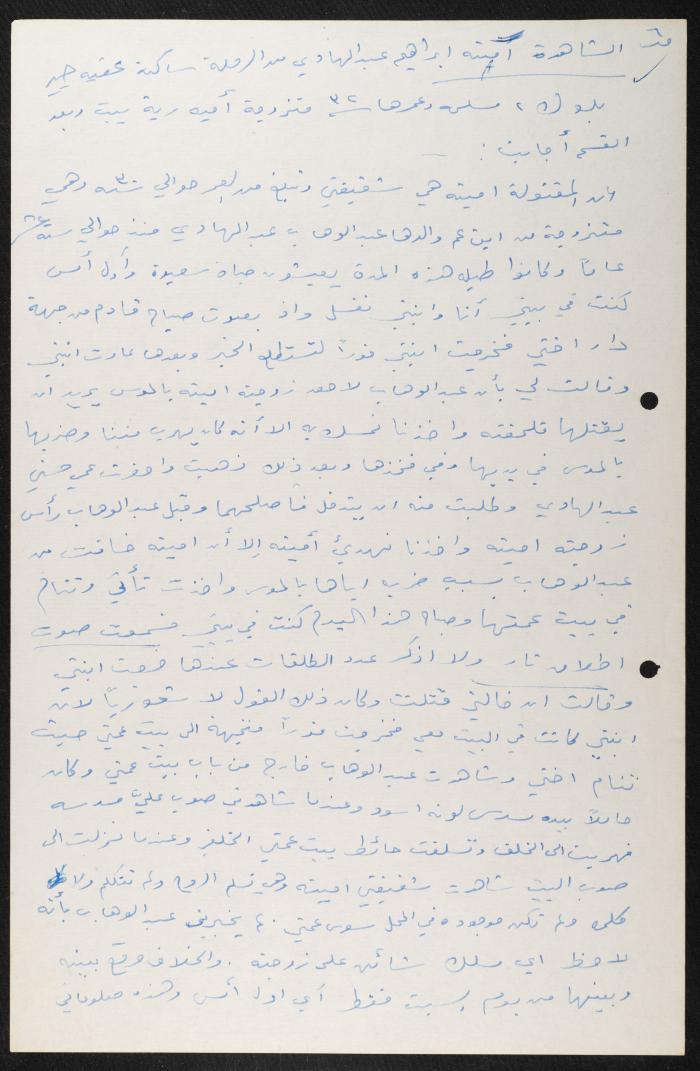 الشاهدة أمينه ابراهيم عبدالهادي من الرملة ساكنة عقبة جبر
بلوك ٢ مسلمه وعمرها ٣٢ متزوجة أميه ربة بيت وبعد
القسم أجابت : —
ان المقتولة امينه هي شقيقتي وتبلغ من العمر حوالي ٣٠ سنه وهي
متزوجة من ابن عم والدها عبدالوهاب عبدالهادي منذ حوالي ستة عشر
عاماً وكانوا طيلة هذه المدة يعيشون حياة سعيدة وأول أمس
كنت في بيتي أنا وابنتي نغسل واذ بصوت صياح قادم من جهة
دار اختي فخرجت ابنتي فوراً لتستطلع الخبر وبعدها عادت ابنتي
وقالت لي بأن عبدالوهاب لاحق زوجته امينه بالموس يريد ان
يقتلها فلحقته واخذنا نمسك به الا أنه كان يهرب مننا وضربها
بالموس في يديها وفي فخذها وبعد ذلك ذهبت واحضرت عمي حسني
عبدالهادي وطلبت منه ان يتدخل فأصلحهما وقبل عبدالوهاب رأس
زوجته امينه واخذنا نهدئ أمينه إلا أن امينه خافت من
عبدالوهاب بسبب ضرب اياها بالموس واخذت تأتي وتنام
في بيت عمتها وصباح هذا اليوم كنت في بيتي فسمعت صوت
اطلاق نار ولا اذكر عدد الطلقات عندها خرجت ابنتي
وقالت ان خالتي قتلت وكان ذلك القول لا شعورياً لان
ابنتي كانت في البيت معي فخرجت فوراً متجهة الى بيت عمتي حيث
تنام اختي وشاهدت عبدالوهاب خارج من باب بيت عمتي وكان
حاملاً بيده مسدس لونه اسود وعندما شاهدني صوب عليّ مسدسه
فهربت الى الخلف وتسلقت حائط بيت عمتي الخلفي وعندما نزلت الى
صوب البيت شاهدت شقيقتي امينه وهي تسلم الروح ولم تتكلم ولا
كلمه ولم تكن موجوده في المحل سوى عمتي . لم يخبرني عبدالوهاب بأنه
لاحظ اي مسلك شائن على زوجته . والخلاف وقع بينه
وبينها من يوم السبت فقط أي اول أمس وهذه معلوماتي